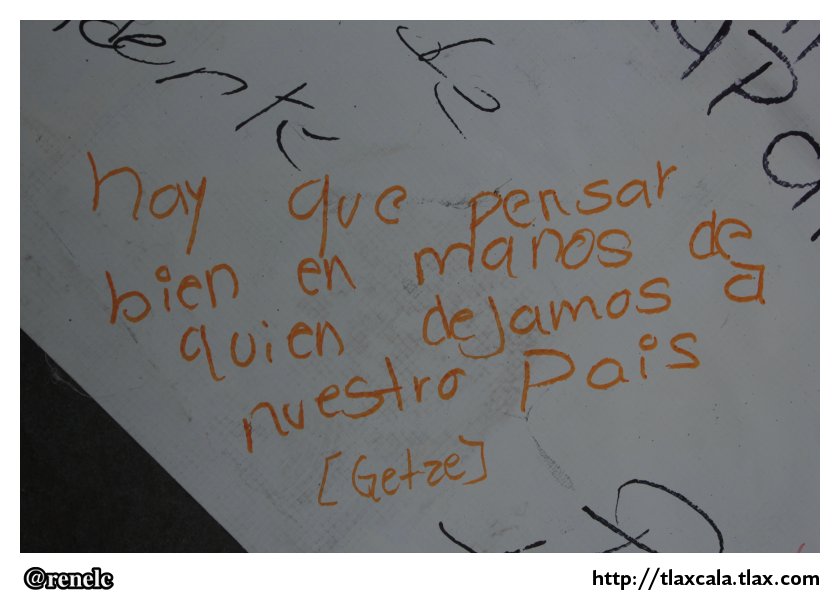 hay que pensar
bien en manos de
quien dejamos a
nuestro Pais
[Getze]
@renelc
http://tlaxcala.tlax.com/